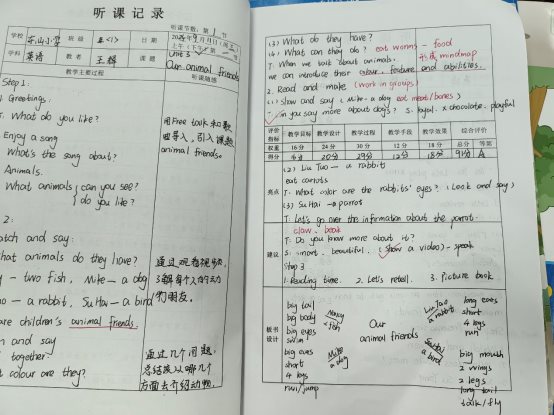 听课记录
听课节数: 第 1 节
学校 东山小学 班级 五<1> 日期 2025年9月11日(周四)
上午(下午)第 节
学科 英语 教者 王辉 课题 Unit 3 Our animal friends
教学主要过程 听课随感
Step 1
Greetings.
T: What do you like?
Enjoy a song
What's the song about?
Animals.
What animals can you see?
do you like?
用Free talk和歌
曲导入,引入课题
animal friends.
2:
atch and say:
hat animals do they have?
y - two fish, Mike - a dog
ao - a rabbit, Su Hai - a bird
are children's animal friends.
n and say
together
t colour are they?
通过观看视频,
了解每个人的动
物朋友。
通过几个问题,
总结从以哪几个
方面去介绍动物.
(3) What do they have?
(4) What can they do? eat worms - food
T: When we talk about animals, 形成mindmap
we can introduce their colour, feature and abilities.
2. Read and make (work in groups)
(1) Slow and say (Mike - a dog eat meat/bones)
T: Can you say more about dogs? S: loyal. x chocolate. playful
评价指标 教学目标 教学设计 教学过程 教学手段 教学效果 综合评价
权重 16分 24分 30分 12分 18分 总分 等第
得分 20分 29分 12分 18分 A
亮点
(2) Liu Tao - a rabbits
eat carrots
T: What color are the rabbits' eyes? (Look and say)
(3) Su Hai - parrots
T: Let's go over the information about the parrot.
claw. beak
建议
T: Do you know more about it?
S: smart. beautiful. (Show a video) - speak
Step 3
1. Reading time. 2. Let's retell. 3. Picture book
板书设计
big tail
big body
big eyes
swim
Nancy
fish
big eyes
short
4 legs
run/jump
Mike
a dog
Our
animal friends
Liu Tao
a rabbit
long eyes
short
4 legs
run
Su Hai
a bird
big mouth
2 wings
2 legs
long tail
talk/fly